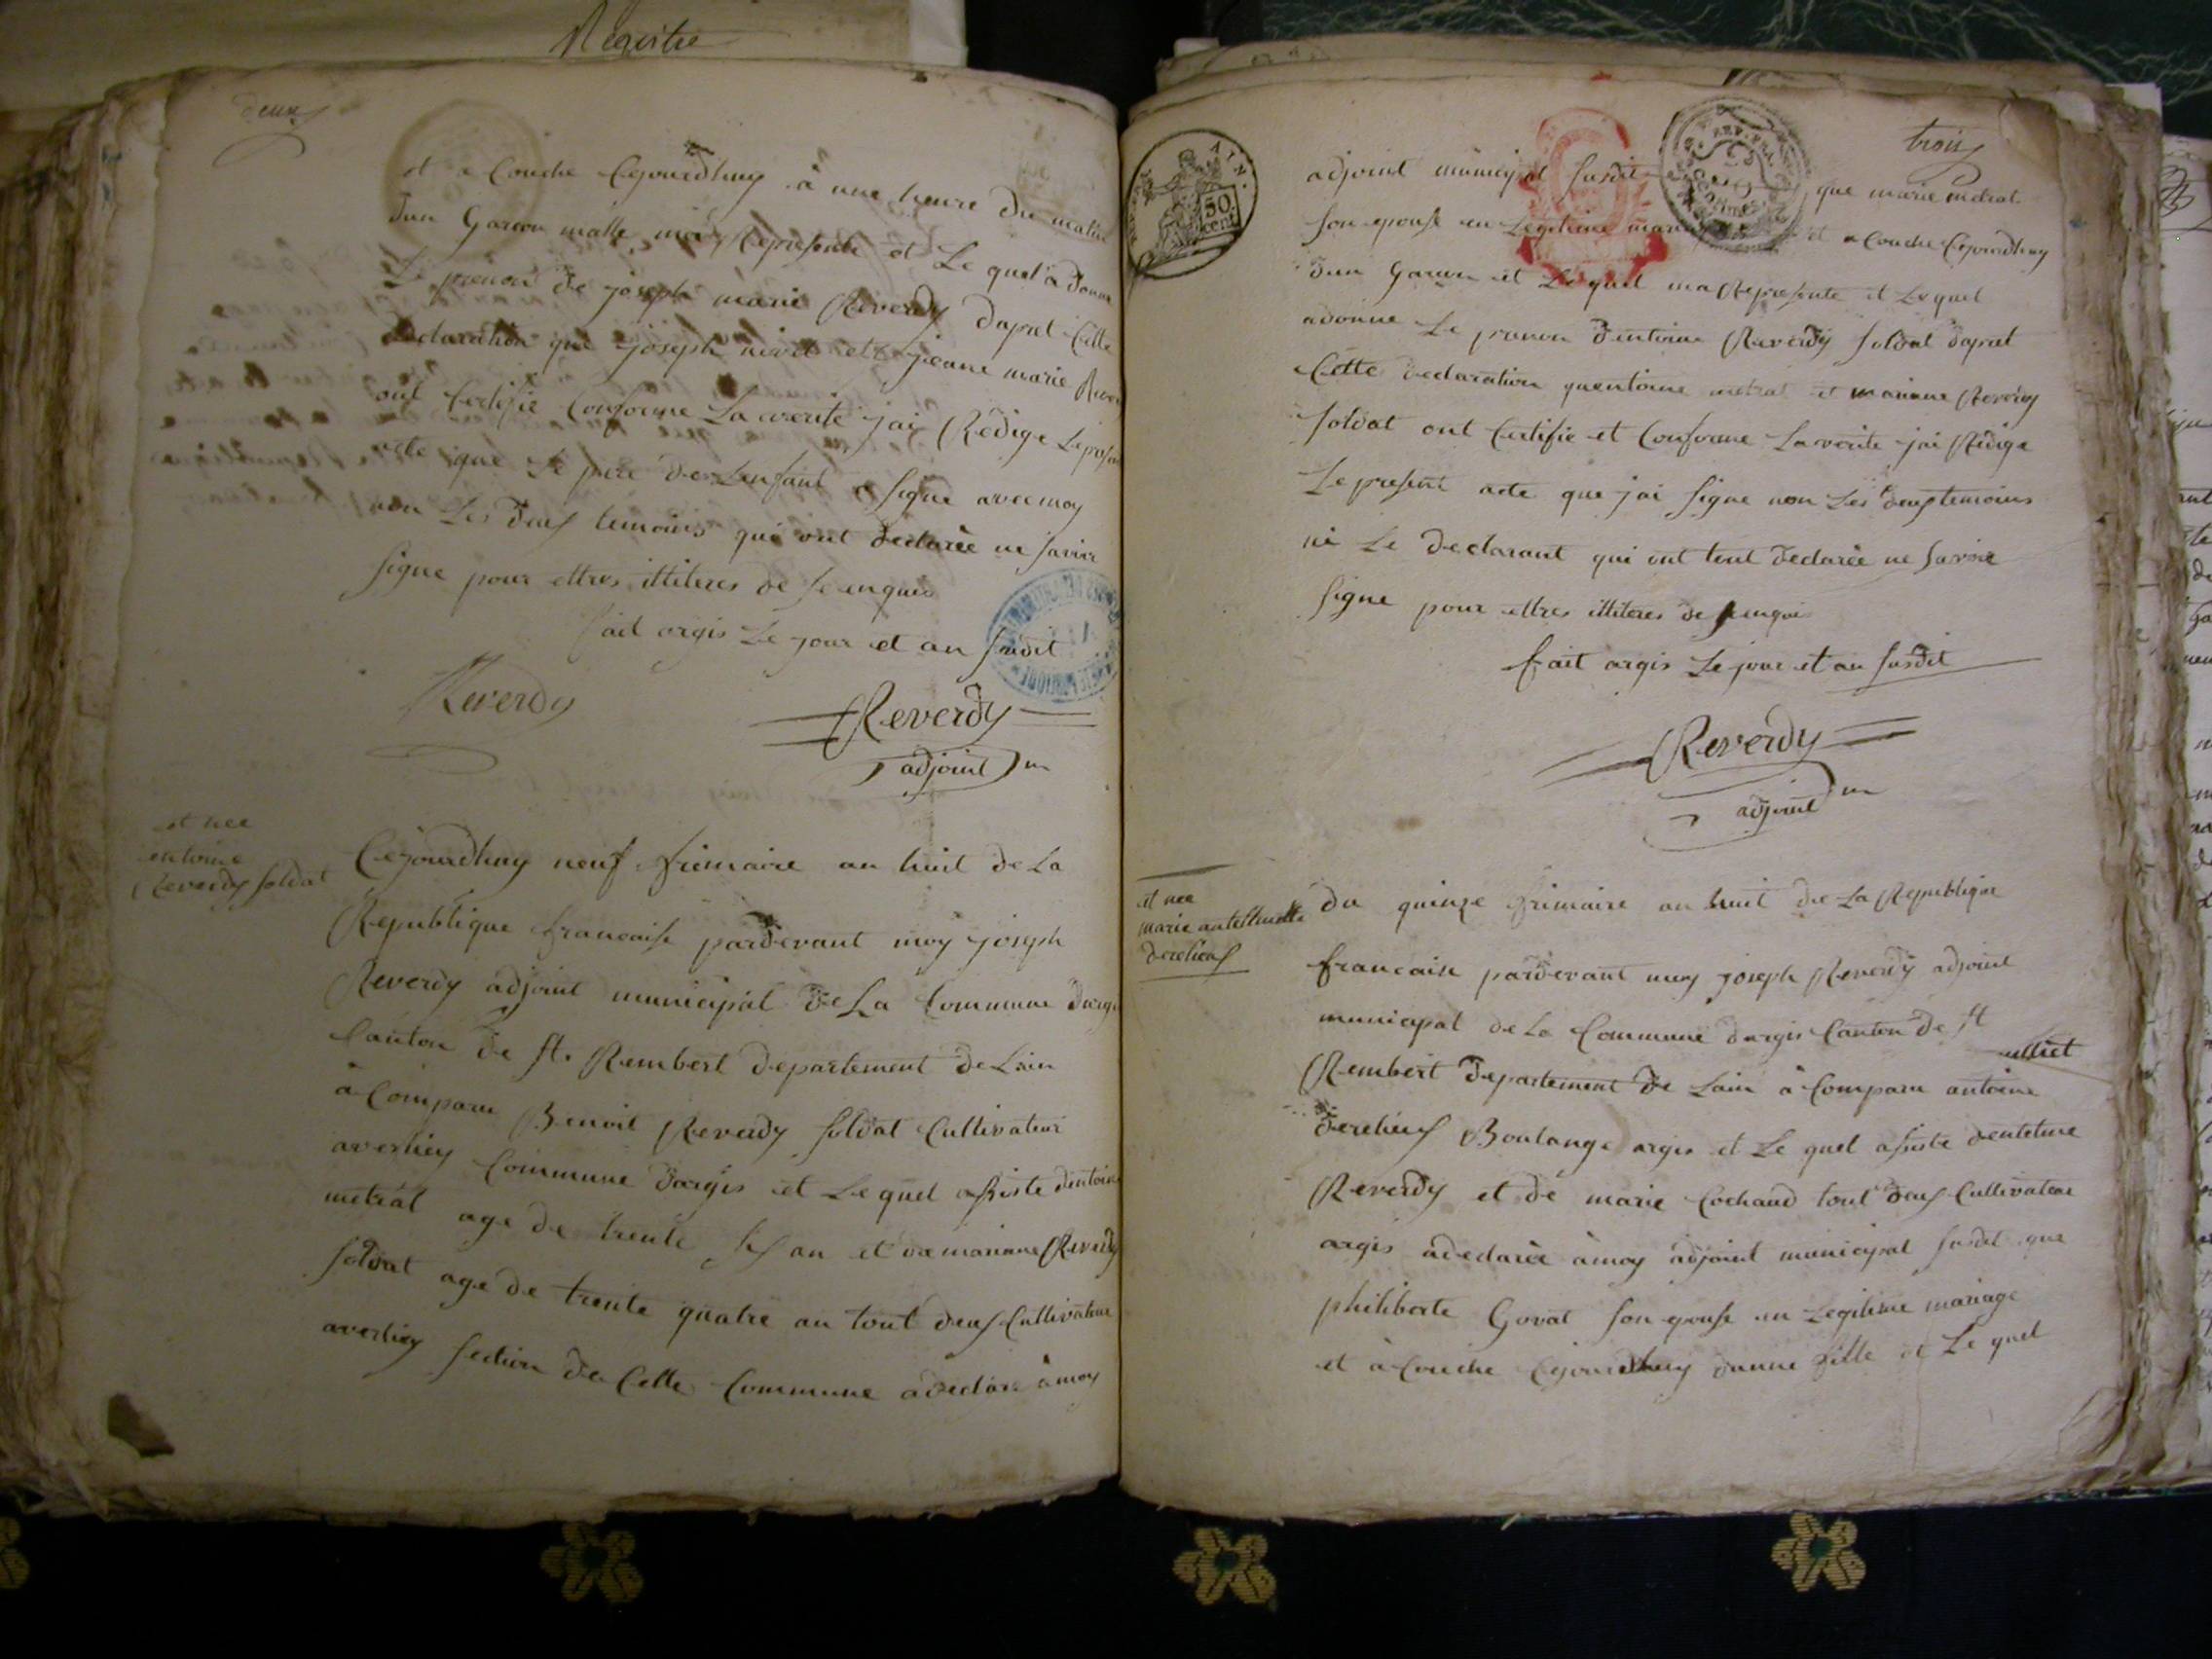 Registre
deux
et a Couche Cejourdhuy à une heure du matin
dun Garcon malle moy Represente et Le quel a donne
Le prenon de joseph marie Reverdy dapret Cette
declaration que joseph nivet et jeane marie
ont Certifie Conforme La verite jai Redige Le
acte que Le pere de Lenfant a signe avec moy
non Les deus temoins qui ont declarèe ne savoir
signe pour ettres ittiteres de
fait argis Le jour et an susdit
Reverdy
Reverdy
adjoint m
et nee
entoine
Reverdy soldat
Cejourdhuy neuf frimaire an huit de La
Republique francaise pardevant moy joseph
Reverdy adjoint municipal de La Commune
Canton de st. Rembert departement de Lain
à Comparu Benoit Reverdy soldat Cultivateur
averliey Commune dargis et Le quel assiste
metral age de trente an et de mariane Reverdy
soldat age de trente quatre an tout deus Cultivateur
averliey section de Cette Commune a declare à moy
AIN.
50
cent
REP. FRA.
trois
adjoint municipal susdit que marie metral
son epouse en Legitime et a Couche Cejourdhuy
dun Garcon et Le quel ma Represente et Le quel
adonne Le prenon dentoine Reverdy soldat dapret
Cette declaration quentoine metral et mariane Reverdy
soldat ont Certifie et Conforme La verite jai Redige
Le present acte que jai signe non Les deus temoins
ni Le declarant qui ont tout declarèe ne savoir
signe pour ettres ittiteres de
fait argis Le jour et an susdit
Reverdy
adjoint m
et nee
marie
derelieus
du quinze frimaire an huit de La Republique
francaise pardevant moy joseph Reverdy adjoint
municipal de La Commune dargis Canton de st
Rembert departement de Lain à Comparu antoine
derelieus Boulange argis et Le quel asiste
Reverdy et de marie Cochaud tout deus Cultivateur
argis adeclarèe à moy adjoint municipal susdit que
philiberte Goval son epouse en Legitime mariage
et à Couche Cejourdhuy dunne fille et Le quel